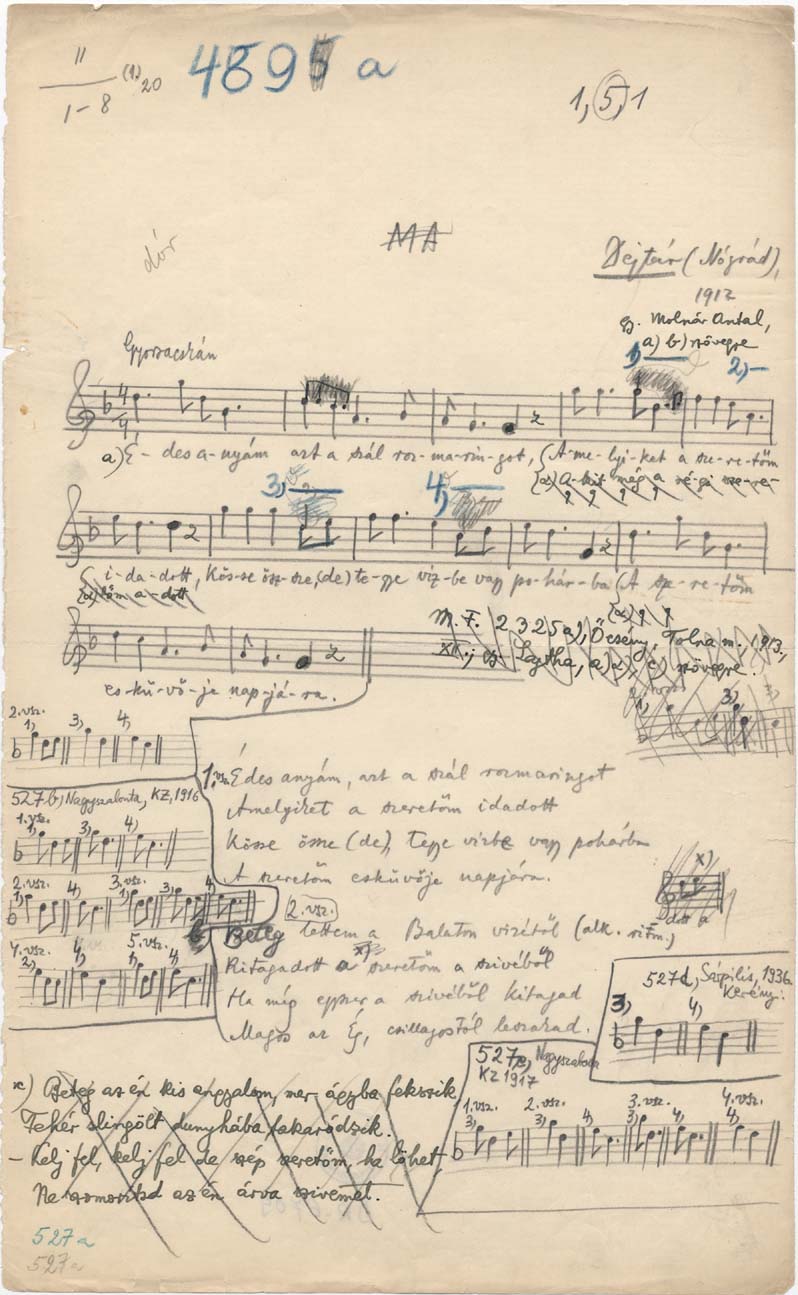 II
1-8
(1)20
489 a
1, 5, 1
dór
MA
Dejtár (Nógrád),
1912
gy. Molnár Antal,
a) b) szövegre
Gyorsacskán
1) 2)
a) É-des a-nyám azt a szál roz-ma-rin-got, (A-me-lyi-ket a sze-re-tőm
(a) A-kit még a ré-gi sze-re-
3) 4)
i-da-dott, Kös-se ösz-sze, (de) te-gye víz-be vagy po-hár-ba (A sze-re-tőm
(a) tőm a-dott
es-kü-vő-je nap-já-ra.
M. F. 2325a), Őcsény, Tolna m., 1913,
XII.; gy. Lajtha, a) c) szövegre.
2. vsz.
1) 3) 4)
1. vsz. Édes anyám, azt a szál rozmaringot
Amelyiket a szeretőm idadott
Kösse össze (de), Tegye vízbe vagy pohárba
A szeretőm esküvője napjára.
527b) Nagyszalonta, KZ, 1916
1. vsz.
1) 3) 4)
2. vsz. 3. vsz.
1) 4) 1) 3) 4)
4. vsz. 5. vsz.
2) 4) 1) 4)
x)
2. vsz.
Beteg lettem a Balaton vizétől (alk. ritm.)
Kitagadott a szeretőm a szivéből
Ha még egyszer a szivéből kitagad
Magos az Ég, csillagostól leszakad.
527d, Szőpilis, 1936.
Kerényi.
3) 4)
527c) Nagyszalonta
KZ 1917
1. vsz. 2. vsz. 3. vsz. 4. vsz.
3) 4) 3) 4) 3) 4) 4)
x) Beteg az én kis angyalom, mer ágyba fekszik,
Fehér slingölt dunyhába takaródzik.
- Kelj fel, kelj fel de szép szeretőm, ha löhet,
Ne szomorítsd az én árva szivemet.
527a
527a